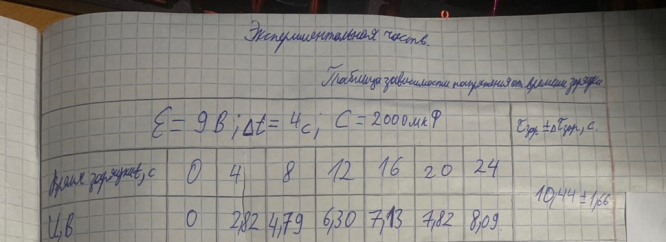 Экспериментальная часть.
Таблица зависимости напряжения от времени зарядки
ℰ = 9 В; Δt = 4 с; C = 2000 мкФ
τзар ± Δτзар, с
Время зарядки t, с 0 4 8 12 16 20 24
10,44 ± 1,66
U, В 0 2,82 4,79 6,30 7,13 7,82 8,09